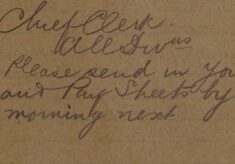 Chief Clerk.
All Divns
Please send in You
and Pay Sheets by
morning next